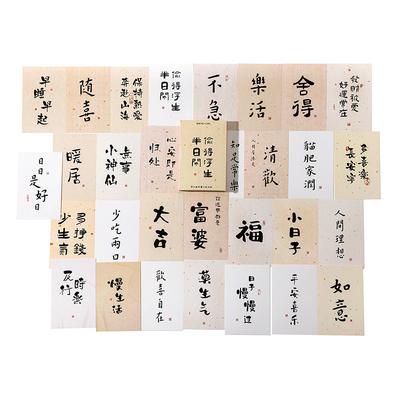 早睡早起
随喜
保持熱愛
奔赴山海
偷得浮生
半日閒
不急
樂活
舍得
好運常在
日日是好日
暖居
無事
小神仙
心安即是
归处
偷得浮生
半日閒
知足常樂
清歡
貓肥家潤
多喜樂
長安寧
多掙錢
少生氣
少吃兩口
大吉
富婆
福
小日子
人間理想
及時
行樂
慢生活
歡喜自在
莫生气
日子
慢慢过
平安喜乐
如意